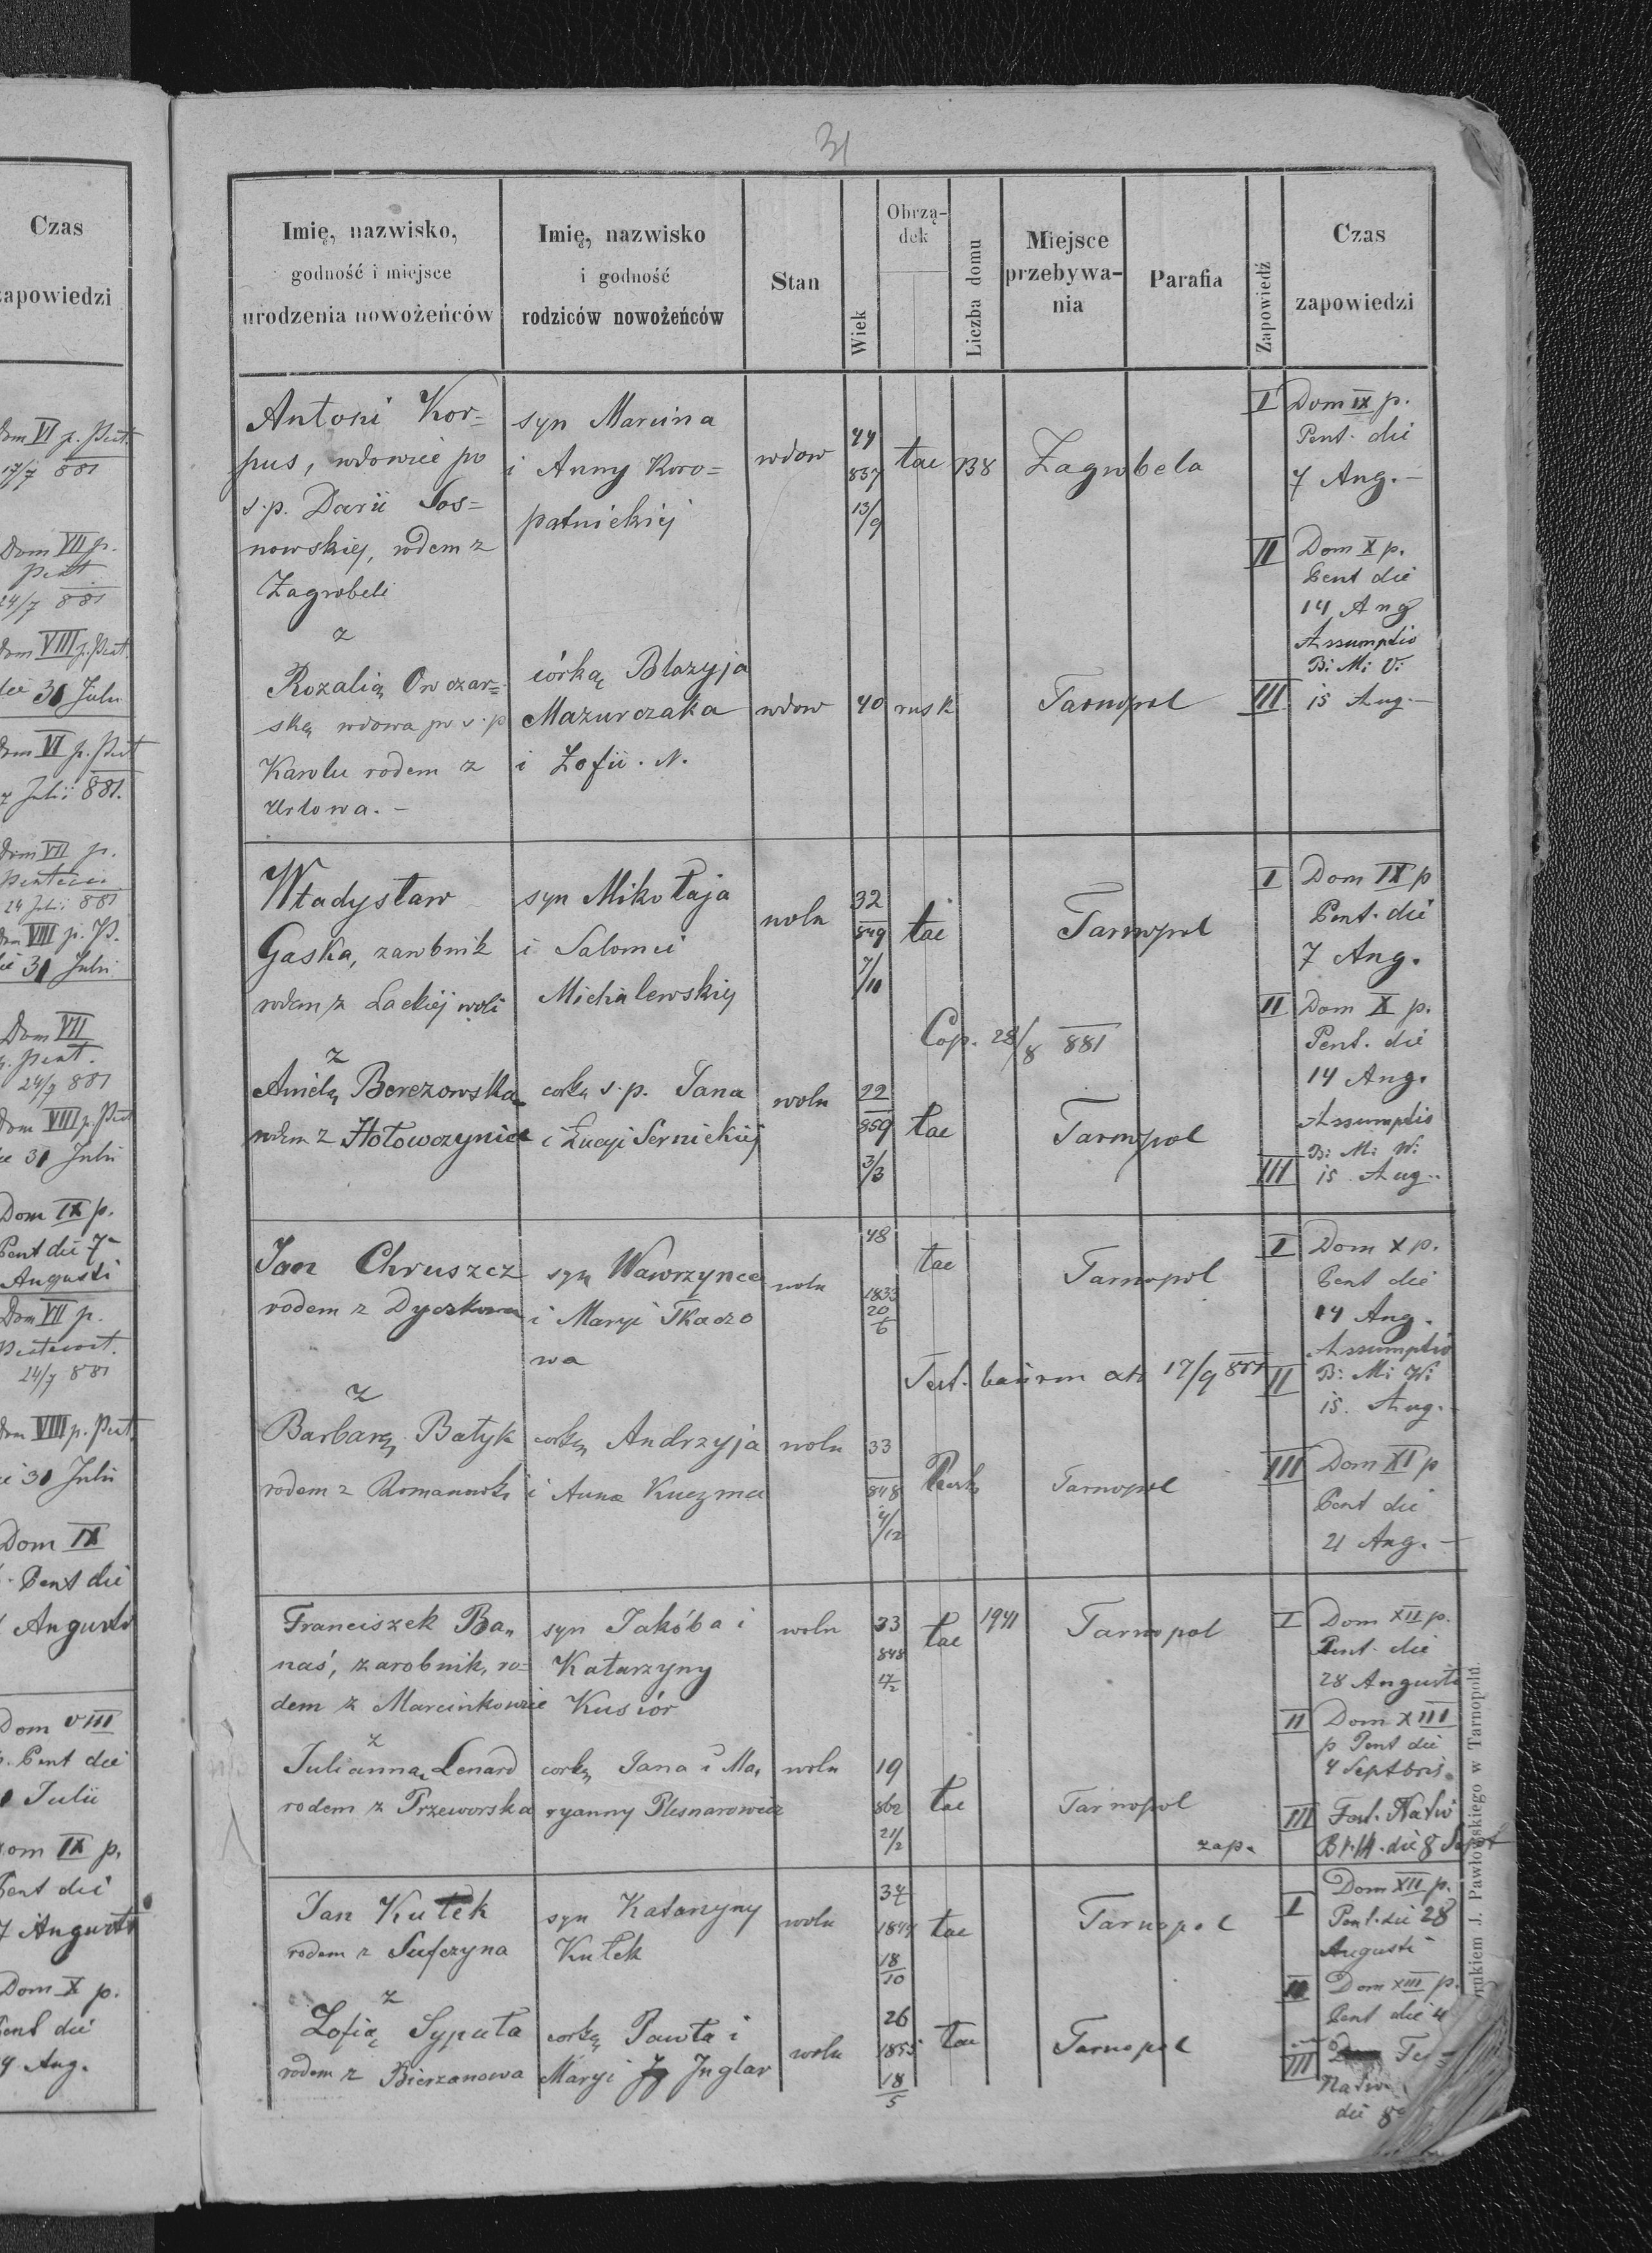 Czas
zapowiedzi
Dom VI p. Pent.
17/7 881
Dom VII p.
Pent
24/7 881
Dom VIII p. Pent.
die 31 Julii
Dom VI p. Pent
Julii 881.
Dom VII p.
24 Julii 881
Dom VIII p. P.
die 31 Julii
Dom VII
p. Pent.
24/7 881
Dom VIII p. Pent
die 31 Julii
Dom IX p.
Pent die 7
Augusti
Dom VII p.
24/7 881
Dom VIII p. Pent.
die 31 Julii
Dom IX
p. Pent die
Augusti
Dom VIII
p. Pent die
Julii
Dom IX p.
Pent die
7 Augusti
Dom X p.
Pent die
Aug.
31
Imię, nazwisko,
godność i miejsce
urodzenia nowożeńców
Imię, nazwisko
i godność
rodziców nowożeńców
Stan
Wiek
Obrzą-
dek
Liczba domu
Miejsce
przebywa-
nia
Parafia
Zapowiedź
Czas
zapowiedzi
Antoni Kor=
pus, wdowiec po
s.p. Darii Sos=
nowskiej, rodem z
Zagrobeli
z
Rozalią Owczar=
ską wdowa po s.p
Karolu rodem z
Urlowa. -
syn Marcina
i Anny Koro=
patnickiej
córką Błazyja
Mazurczaka
i Zofii. N.
wdow
wdow
44
837
13/9
40
łac
rusk
138
Zagrobela
Tarnopol
I Dom IX p.
Pent. die
7 Aug. -
II Dom X p.
Pent die
14 Aug
Assumptio
B: M: V:
III 15 Aug. -
Władysław
Gaska, zarobnik
rodem z Lackiéj woli
z
Anielą Berezowska
rodem z Hołowczyniec
syn Mikołaja
i Salomei
Michalewskiej
corką s.p. Jana
i Łucyi Sernickiéj
woln
woln
32
849
7/11
22
859
3/3
łac
łac
Cop. 28/8 881
Tarnopol
Tarnopol
I Dom IX p
Pent. die
7 Aug.
II Dom X p.
Pent. die
14 Aug.
Assumptio
B: M: V:
III 15 Aug.
Jan Chruszcz
rodem z Dyczkowa
z
Barbarą Batyk
rodem z
syn Wawrzynca
i Maryi Tkaczo
wa
corką Andrzyja
i Anna Kuczma
woln
woln
48
1833
20
6
33
848
4/12
łac
17/9 881
Tarnopol
Tarnopol
I Dom X p.
Pent die
14 Aug.
Assumptio
II B: M: V:
15. Aug.
III Dom XI p
Pent die
21 Aug. -
Franciszek Ba„
naś, zarobnik, ro=
dem z Marcinkowic
z
Julianną Lenard
rodem z Przeworska
syn Jakóba i
Katarzyny
Kusiór
corką Jana i Ma„
ryanny Plesnarowicz
woln
woln
33
848
19
862
21/2
łac
łac
1941
Tarnopol
Tarnopol
zap.
I Dom XII p.
Pent. die
28 Augusti
II Dom XIII
p Pent die
4 Septbris
III Fest. Nativ
B.V.M. die 8 Sept
Jan Kułek
rodem z Sufczyna
z
Zofią Syputa
rodem z Bierzanowa
syn Katarzyny
Kułek
corką Pawła i
Maryi Inglar
woln
woln
37
1844
18
10
26
1855
18
5
łac
łac
Tarnopol
Tarnopol
I Dom XII p.
Pent. die 28
Augusti
II Dom XIII p.
Pent die 4
III
Nativ
die 8
Drukiem J. Pawłowskiego w Tarnopolu.